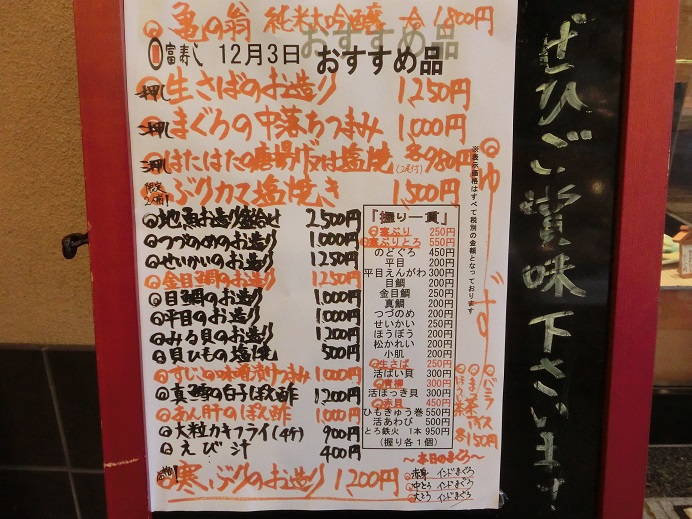 亀の翁 純米大吟醸 一合 1800円
富寿し 12月3日 おすすめ品
押し 生さばのお造り 1250円
押し まぐろの中落ちつまみ 1,000円
押し はたはたの唐揚げ又は塩焼 各980円
(2尾付)
限定2人前! ぶりカス塩焼き 1,500円
地魚お造り盛合せ 2,500円
つづのめのお造り 1,000円
せいかいのお造り 1250円
金目鯛のお造り 1250円
目鯛のお造り 1,000円
平目のお造り 1,000円
みる貝のお造り 1200円
貝ひもの塩焼 500円
すじこの味噌漬けつまみ 1000円
真鱈の白子ぽん酢 1200円
あん肝のぽん酢 1,000円
大粒カキフライ(4ケ) 900円
えび汁 400円
寒ぶりのお造り 1200円
「握り一貫」
寒ぶり 250円
寒ぶりとろ 550円
のどぐろ 450円
平目 200円
平目えんがわ 300円
目鯛 200円
金目鯛 250円
真鯛 200円
つづのめ 200円
せいかい 250円
ほうぼう 200円
松かれい 200円
小肌 200円
生さば 250円
活ばい貝 300円
青柳 300円
活ほっき貝 300円
赤貝 450円
ひもきゅう巻 550円
活あわび 500円
とろ鉄火 1本 950円
(握り各1個)
※表示価格はすべて税別の金額となっております
ゆず
バニラ
ごま
抹茶
ほうじ茶
アイス
各150円
〜本日のまぐろ〜
赤身 インドまぐろ
中とろ インドまぐろ
大とろ インドまぐろ
ぜひご賞味下さいませ!